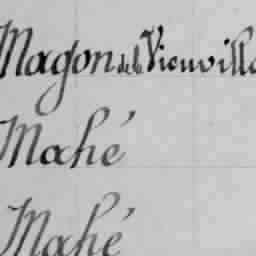 Magon de la Vieuville
Mahé
Mahé